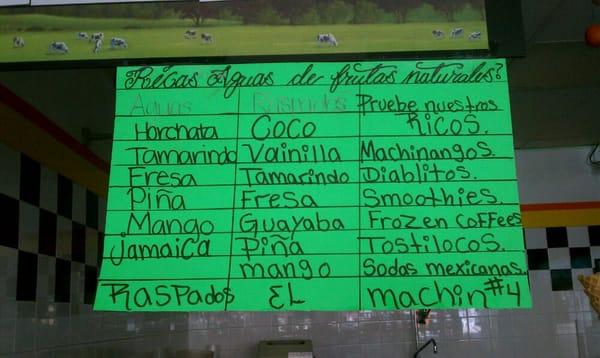 Ricas Aguas de frutas naturales?
Aguas Raspados Pruebe nuestros
Horchata Coco Ricos.
Tamarindo Vainilla Machinangos.
Fresa Tamarindo Diablitos.
Piña Fresa Smoothies.
Mango Guayaba Frozen Coffees
jamaica Piña Tostilocos.
mango Sodas mexicanas.
Raspados EL machin #4